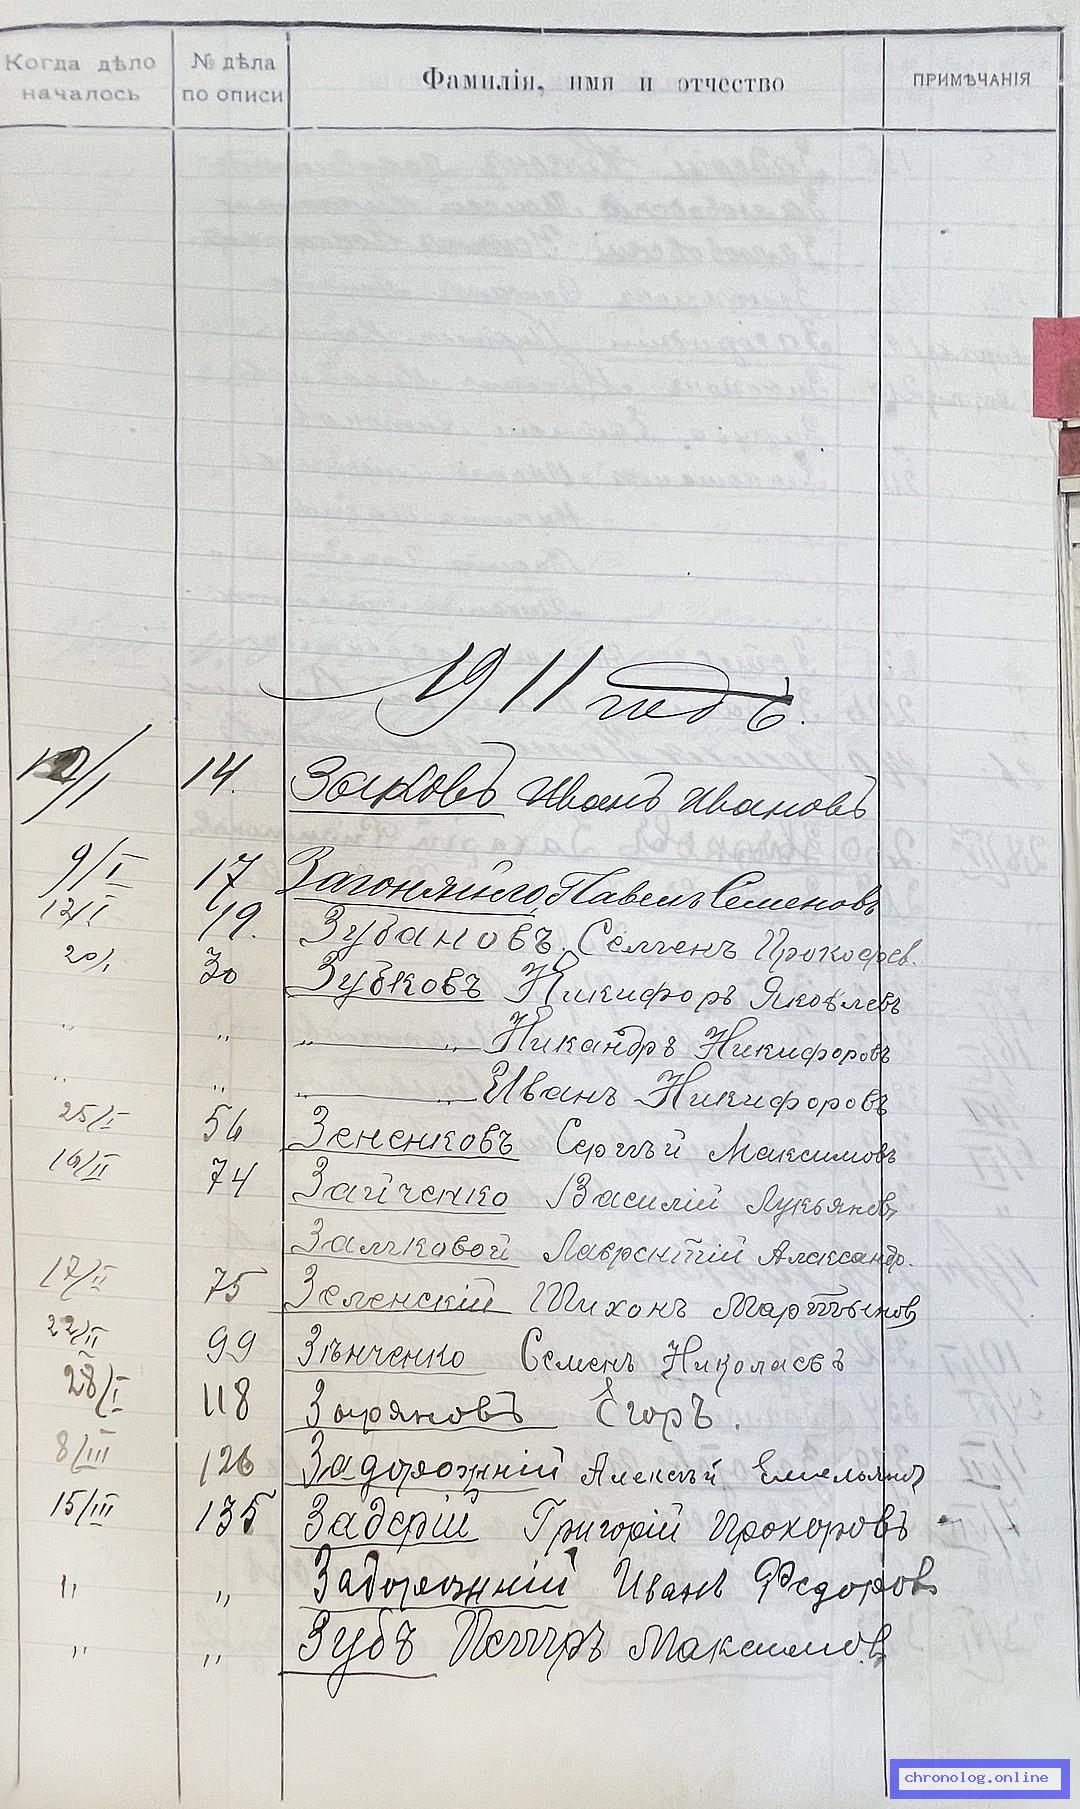 Когда дѣло началось № дѣла по описи Фамилія, имя и отчество ПРИМѢЧАНІЯ
1911 годъ.
12/I 14. Зыковъ Иванъ Ивановъ
9/I 17 Загоняйло Павелъ Семеновъ
12/I 19. Зубановъ Семенъ Прокофьев.
20/I 30 Зубковъ Никифоръ Яковлевъ
" " " " Никандръ Никифоровъ
" " " " Иванъ Никифоровъ
25/I 56 Зененковъ Сергѣй Максимовъ
16/II 74 Зайченко Василій Лукьяновъ
Залчковой Лаврентій Александр.
17/II 75 Зеленскій Тихонъ Мартыновъ
22/II 99 Зѣнченко Семенъ Николаевъ
28/I 118 Зыряновъ Егоръ.
8/III 126 Задорожній Алексѣй Емельянов
15/III 135 Задерій Григорій Прохоровъ
" " Задорожній Иванъ Федоровъ
" " Зубъ Петръ Максимов.
chronolog.online